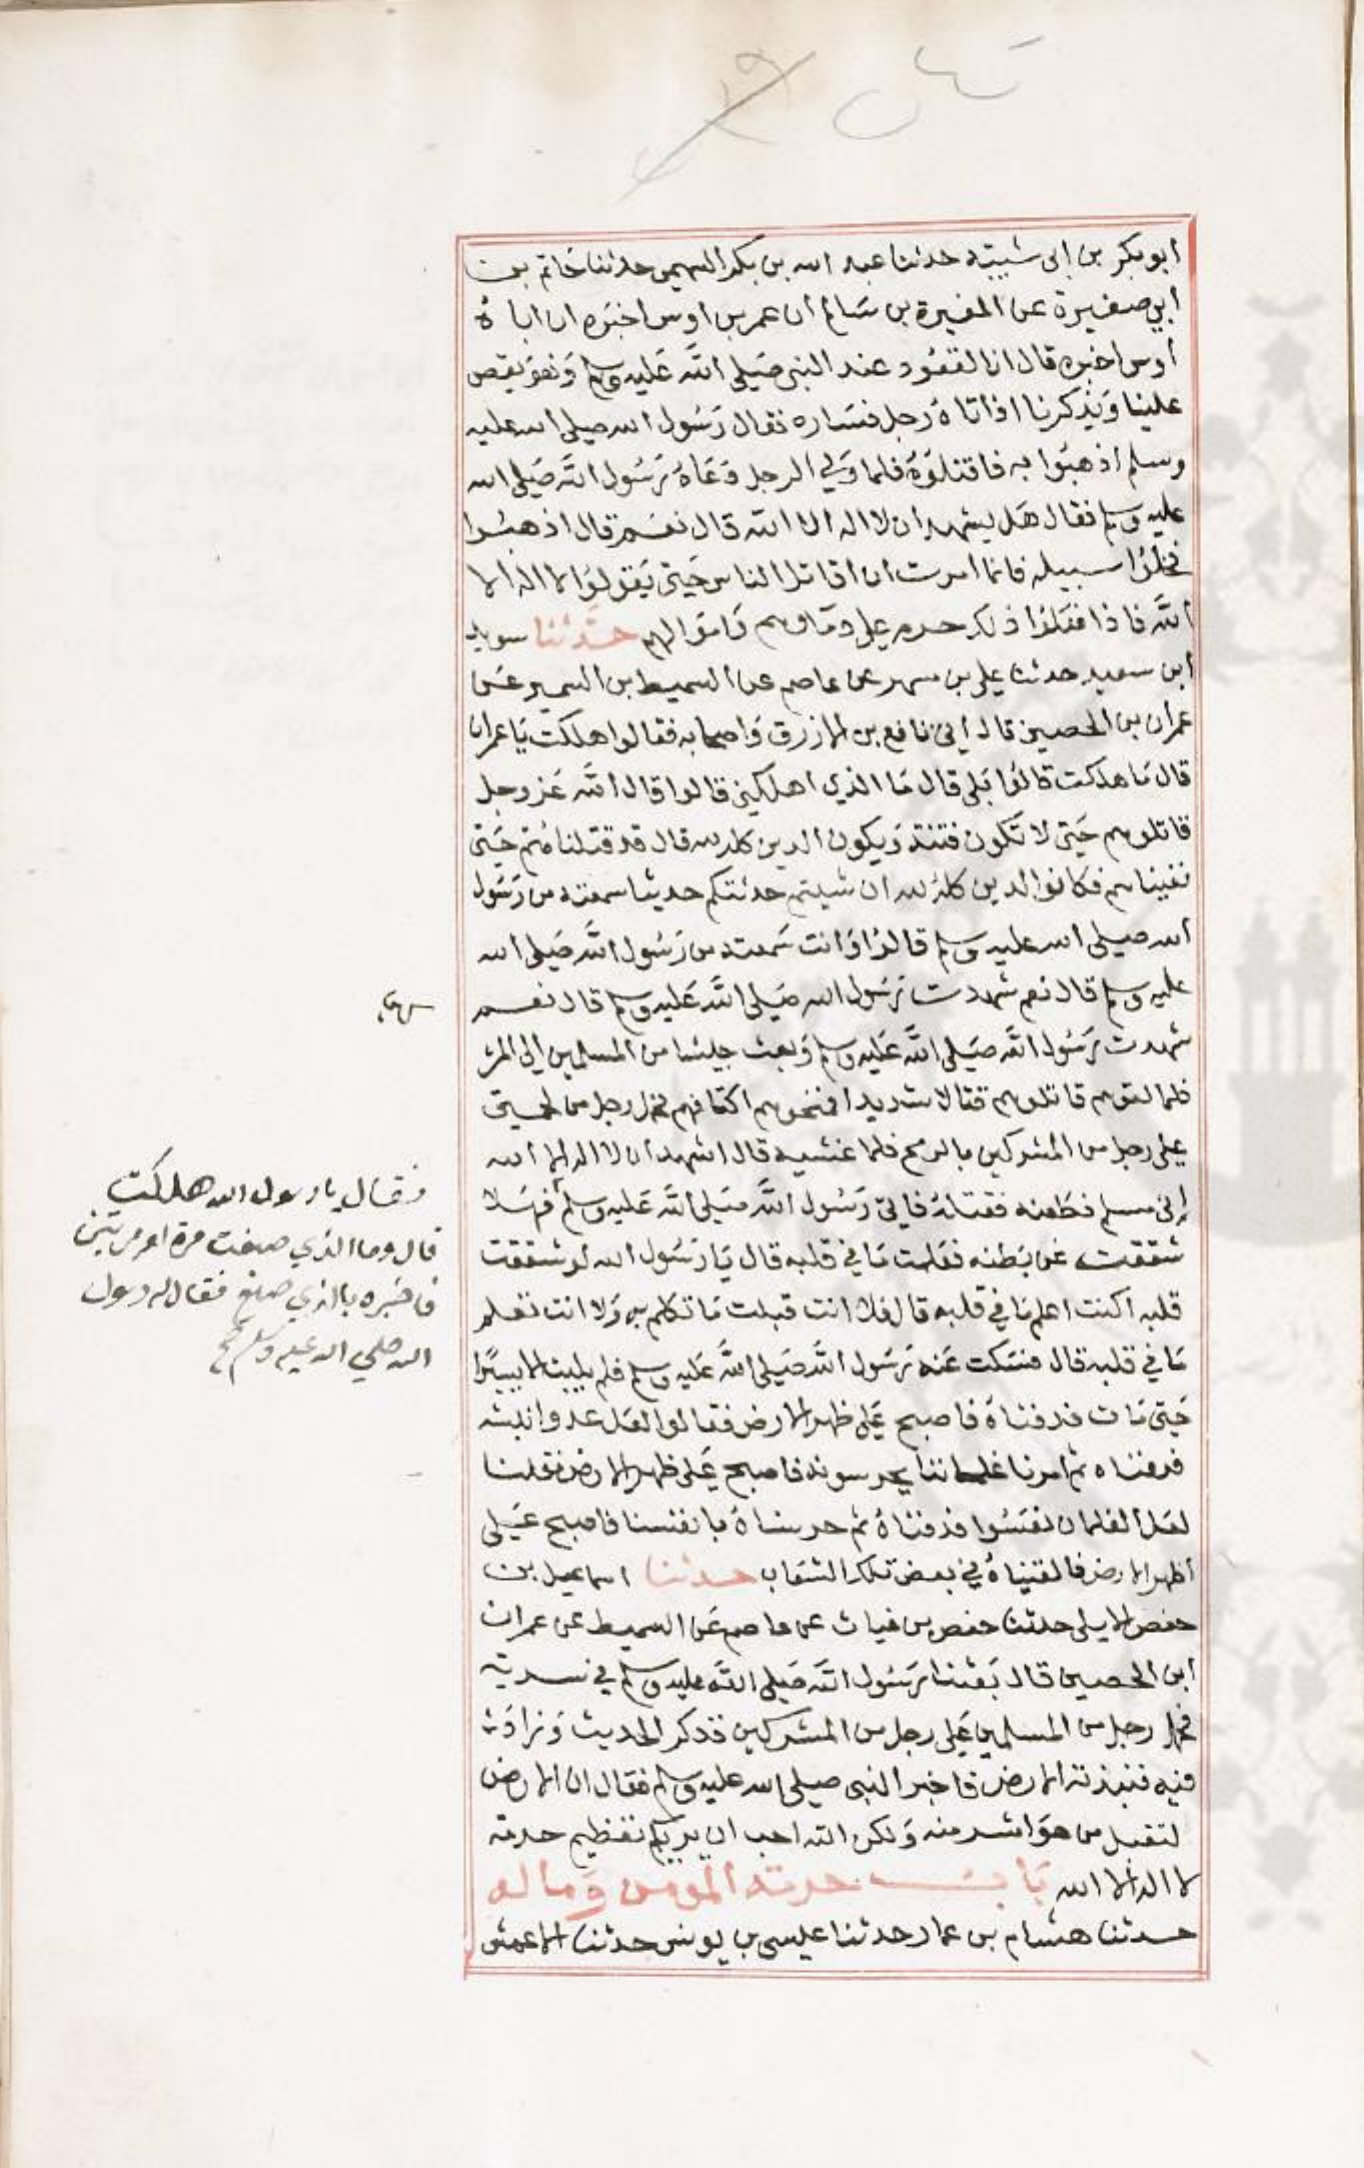 أبو بكر بن ابى شيبة حدثنا عبد الله بن بكر السهمي حدثنا حَاتم بن
أبي صغيرة عن المغيرة بن سَالم أن عمر بن أوس اخبَره ان اباهُ
أوس اخبره قال انا لقعُود عند النبي صَلى اللَّه عَليه وسلم وَهوَ يقص
علينا وَيذكرنا اذ اتاهُ رَجل فسَاره فقال رَسُول الله صلى الله عليه
وسلم اذهبُوا به فاقتلوُهُ فلما وَلي الرجل دَعَاهُ رَسُول اللَّه صَلى الله
عليه وسلم فقال هَل يشهد ان لا اله الا الله قال نعَم قال اذهبُوا
فخلوُا سبيله فانما امرت ان اقاتل الناس حَتى يَقولوُا لا اله الا
اللَّه فاذا فعَلوُا ذلك حرم علي دمَاوهم وَاموَالهم حَدَّثنا سويد
ابن سعيد حدثنا علي بن مسهر عن عاصم عن السميط بن السمير عَن
عمران بن الحصين قال أتى نافع بن الازرق وَاصحابه فقالوا هلكت يَا عمران
قال مَا هلكت قالوُا بَلى قال مَا الذي اهلكني قالوا قال اللَّه عَز وجل
قاتلوهم حَتى لا تَكون فتنة وَيكون الدين كله لله قال قد قتلناهُم حَتى
نفيناهم فكانوا الدين كلهُ لله ان شيتم حدثتكم حديثا سمعته من رَسُول
الله صلى الله عليه وسلم قالوُا وَانت سَمعته من رَسُول اللَّه صَلى الله
عليه وسلم قال نعم شهدت رَسُول الله صَلى اللَّه عَليه وسلم قال نعم
شهدت رَسُول اللَّه صَلى اللَّه عَليه وسلم وَبعث جيشا من المسلمين إلى المشر
فلما لقوهم قاتلوهم قتالا شديدا فمنحوهم اكتافهم فحمل رجل من لحمتي
على رجل من المشركين بالرمح فلما غشيه قال اشهد أن لا اله الا الله
إنى مسلم فطعنه فقتلهُ فاتى رَسُول اللَّه صَلى اللَّه عَليه وسلم فهَلا
شققت عَن بَطنه فعَلمت مَا في قلبه قال يَا رَسُول الله لو شققت
قلبه اكنت اعلم مَا في قلبه قال فلا انت قبلت مَا تكلم به وَلا انت تعلم
مَا في قلبه قال فسَكت عَنه رَسُول اللَّه صَلى اللَّه عَليه وسلم فلم يلبث الا يسيَرا
حَتى مَات فدفناهُ فاصبح عَلى ظهر الارض فقالوا لعَل عدوا نبشه
فدفناه ثم امرنا غلماننا يحرسونه فاصبح عَلى ظهر الارض فقلنا
لعَل الغلمان نعَسُوا فدفناهُ ثم حرسناهُ بانفسنا فاصبح عَلى
اظهر الارض فالقيناهُ في بعض تلك الشعَاب حدثنا اسماعيل بن
حفص الايلى حدثنا حفص بن غياث عن عاصم عَن السميط عن عمران
ابن الحصين قال بَعثنا رَسُول اللَّه صَلى اللَّه عليه وسلم في سرية
فحمل رجل من المسلمين عَلى رجل من المشركين فذكر الحديث وَزادَ
فيه فنبذته الارض فاخبر النبي صلى الله عليه وسلم فقال ان الارض
لتقبل من هوَ اشر منه وَلكن الله احب ان يريكم تعظيم حرمة
لا اله الا الله بَابُ حرمة المؤمن وَماله
حدثنا هشام بن عمار حدثنا عيسى بن يونس حدثنا الاعمش
فقال يا رسول الله هلكت
قال وما الذي صنعت مرة او مرتين
فاخبره بالذي صنع فقال له رسول
الله صلي الله عليه وسلم صح